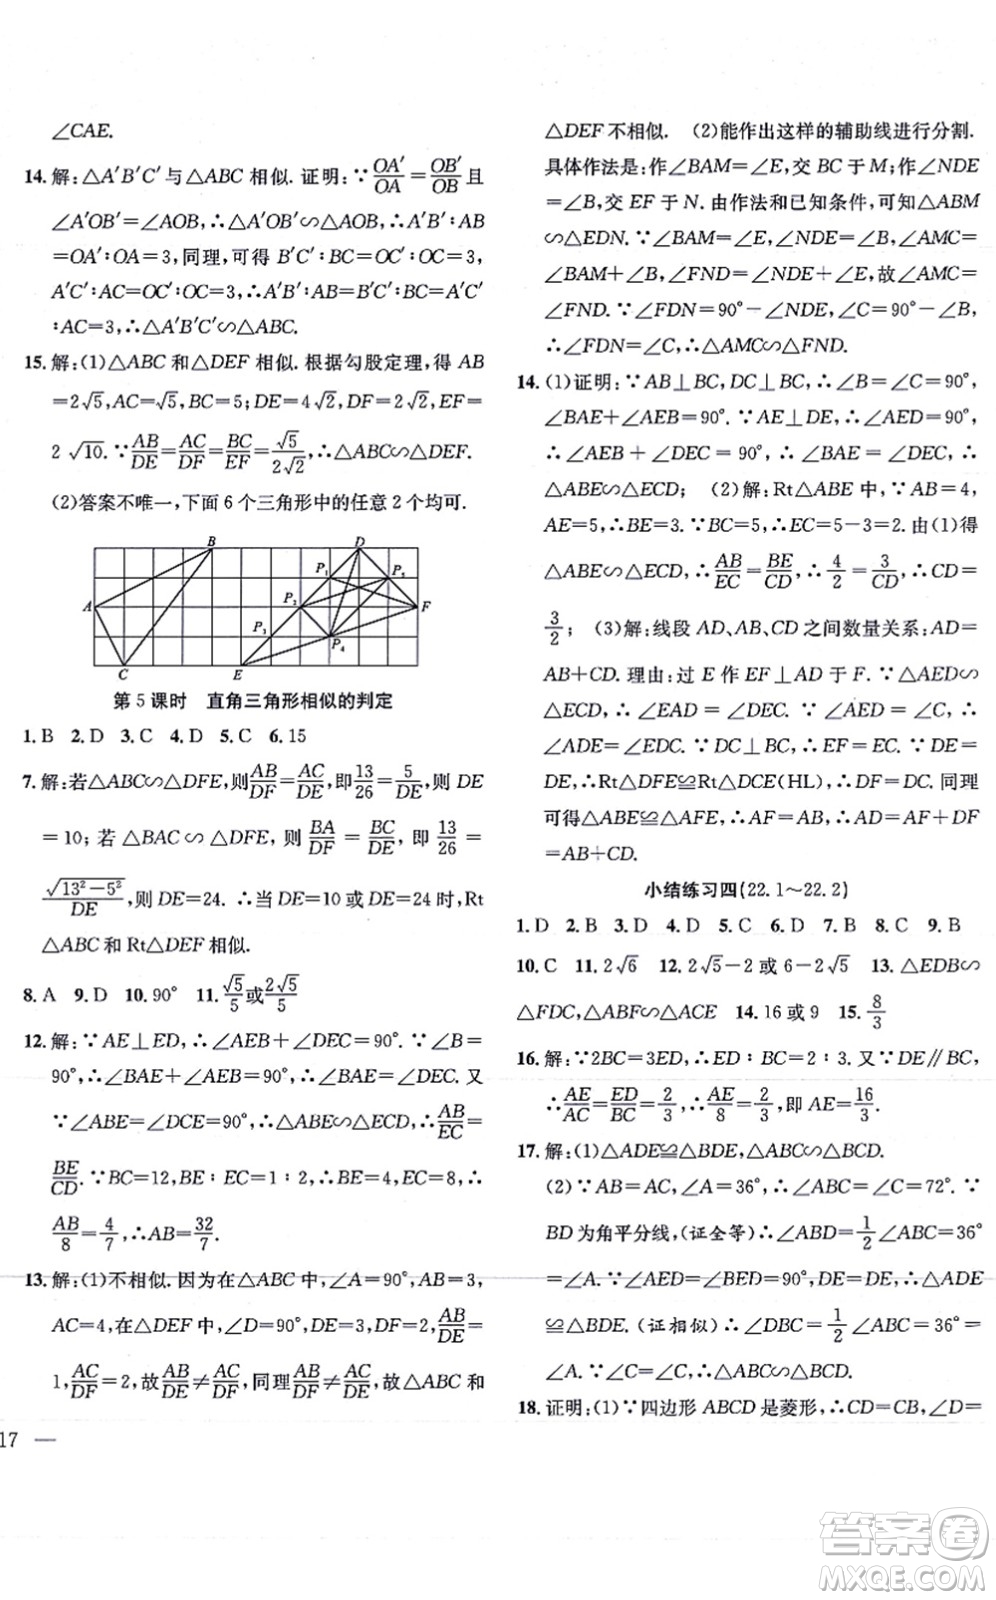 ∠CAE.
14. 解:△A′B′C′与△ABC 相似. 证明:∵OA′/OA=OB′/OB且
∠A′OB′=∠AOB,∴△A′OB′∽△AOB,∴A′B′∶AB
=OA′∶OA=3,同理,可得 B′C′∶BC=OC′∶OC=3,
A′C′∶AC=OC′∶OC=3,∴A′B′∶AB=B′C′∶BC=A′C′
∶AC=3,∴△A′B′C′∽△ABC.
15. 解:(1)△ABC 和△DEF 相似. 根据勾股定理,得 AB
=2√5,AC=√5,BC=5;DE=4√2,DF=2√2,EF=
2√10. ∵AB/DE=AC/DF=BC/EF=√5/(2√2),∴△ABC∽△DEF.
(2)答案不唯一,下面 6 个三角形中的任意 2 个均可.
B D
P₁ P₅
A P₂ F
P₃ P₄
C E
第 5 课时 直角三角形相似的判定
1. B 2. D 3. C 4. D 5. C 6. 15
7. 解:若△ABC∽△DFE,则AB/DF=AC/DE,即13/26=5/DE,则 DE
=10;若△BAC∽△DFE,则BA/DF=BC/DE,即13/26=
√(13²-5²)/DE,则 DE=24. ∴当 DE=10 或 24 时,Rt
△ABC 和 Rt△DEF 相似.
8. A 9. D 10. 90° 11. √5/5或2√5/5
12. 解:∵AE⊥ED,∴∠AEB+∠DEC=90°. ∵∠B=
90°,∴∠BAE+∠AEB=90°,∴∠BAE=∠DEC. 又
∵∠ABE=∠DCE=90°,∴△ABE∽△ECD,∴AB/EC=
BE/CD. ∵BC=12,BE∶EC=1∶2,∴BE=4,EC=8,∴
AB/8=4/7,∴AB=32/7.
13. 解:(1)不相似. 因为在△ABC 中,∠A=90°,AB=3,
AC=4,在△DEF 中,∠D=90°,DE=3,DF=2,AB/DE=
1,AC/DF=2,故AB/DE≠AC/DF,同理AB/DF≠AC/DE,故△ABC 和
17 —
△DEF 不相似. (2)能作出这样的辅助线进行分割.
具体作法是:作∠BAM=∠E,交 BC 于 M;作∠NDE
=∠B,交 EF 于 N. 由作法和已知条件,可知△ABM
∽△EDN. ∵∠BAM=∠E,∠NDE=∠B,∠AMC=
∠BAM+∠B,∠FND=∠NDE+∠E,故∠AMC=
∠FND. ∵∠FDN=90°-∠NDE,∠C=90°-∠B,
∴∠FDN=∠C,∴△AMC∽△FND.
14. (1)证明:∵AB⊥BC,DC⊥BC,∴∠B=∠C=90°,
∠BAE+∠AEB=90°. ∵AE⊥DE,∴∠AED=90°,
∴∠AEB+∠DEC=90°,∴∠BAE=∠DEC,∴
△ABE∽△ECD; (2)解:Rt△ABE 中,∵AB=4,
AE=5,∴BE=3. ∵BC=5,∴EC=5-3=2. 由(1)得
△ABE∽△ECD,∴AB/EC=BE/CD,∴4/2=3/CD,∴CD=
3/2; (3)解:线段 AD、AB、CD 之间数量关系:AD=
AB+CD. 理由:过 E 作 EF⊥AD 于 F. ∵△ABE∽
△ECD,∴∠EAD=∠BAE,∠AED=∠C,∴
∠ADE=∠EDC. ∵DC⊥BC,∴EF=EC. ∵DE=
DE,∴Rt△DFE≌Rt△DCE(HL),∴DF=DC. 同理
可得△ABE≌△AFE,∴AF=AB,∴AD=AF+DF
=AB+CD.
小结练习四(22.1～22.2)
1. D 2. B 3. D 4. D 5. C 6. D 7. B 8. C 9. B
10. C 11. 2√6 12. 2√5-2 或 6-2√5 13. △EDB∽
△FDC,△ABF∽△ACE 14. 16 或 9 15. 8/3
16. 解:∵2BC=3ED,∴ED∶BC=2∶3. 又∵DE∥BC,
∴AE/AC=ED/BC=2/3,∴AE/8=2/3,即 AE=16/3.
17. 解:(1)△ADE≌△BDE,△ABC∽△BCD.
(2)∵AB=AC,∠A=36°,∴∠ABC=∠C=72°. ∵
BD 为角平分线,(证全等)∴∠ABD=1/2∠ABC=36°
=∠A. ∵∠AED=∠BED=90°,DE=DE,∴△ADE
≌△BDE. (证相似)∴∠DBC=1/2∠ABC=36°=
∠A. ∵∠C=∠C,∴△ABC∽△BCD.
18. 证明:(1)∵四边形 ABCD 是菱形,∴CD=CB,∠D=
答案卷
MXQE.COM